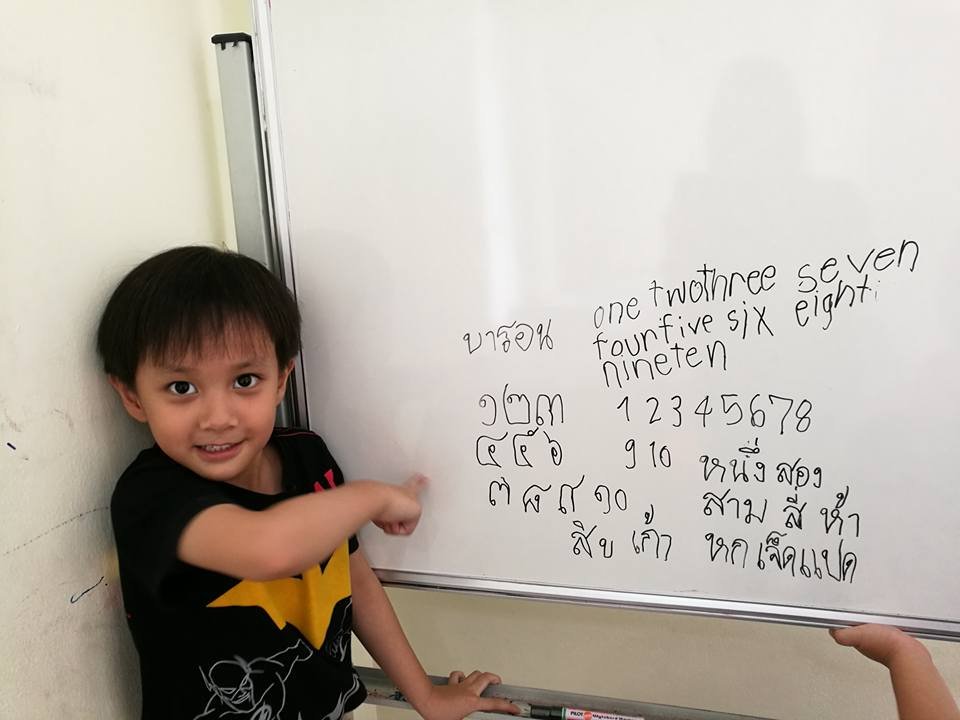 บารอน
one twothree seven
fourfive six eight
nineten
๑๒๓
๔๕๖
๗๘๙๑๐
1 2 3 4 5 6 7 8
9 10
หนึ่ง สอง
สาม สี่ ห้า
หกเจ็ดแปด
สิบ เก้า
PILOT